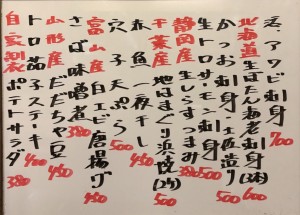 活アワビ刺身 700
北海道生ぼたん海老刺身(3本) 600
かつお刺身・土佐造り 500
生トロサーモン刺身 500
静岡産生しらすつまみ 380
千葉産地はまぐり浜焼(2ケ) 500
赤魚一夜干し 450
穴子天ぷら 500
富山産白エビ唐揚げ 450
さば味噌煮 380
山形産だだちゃ豆 450
トロ茄子ステーキ 400
自家製ポテトサラダ 380